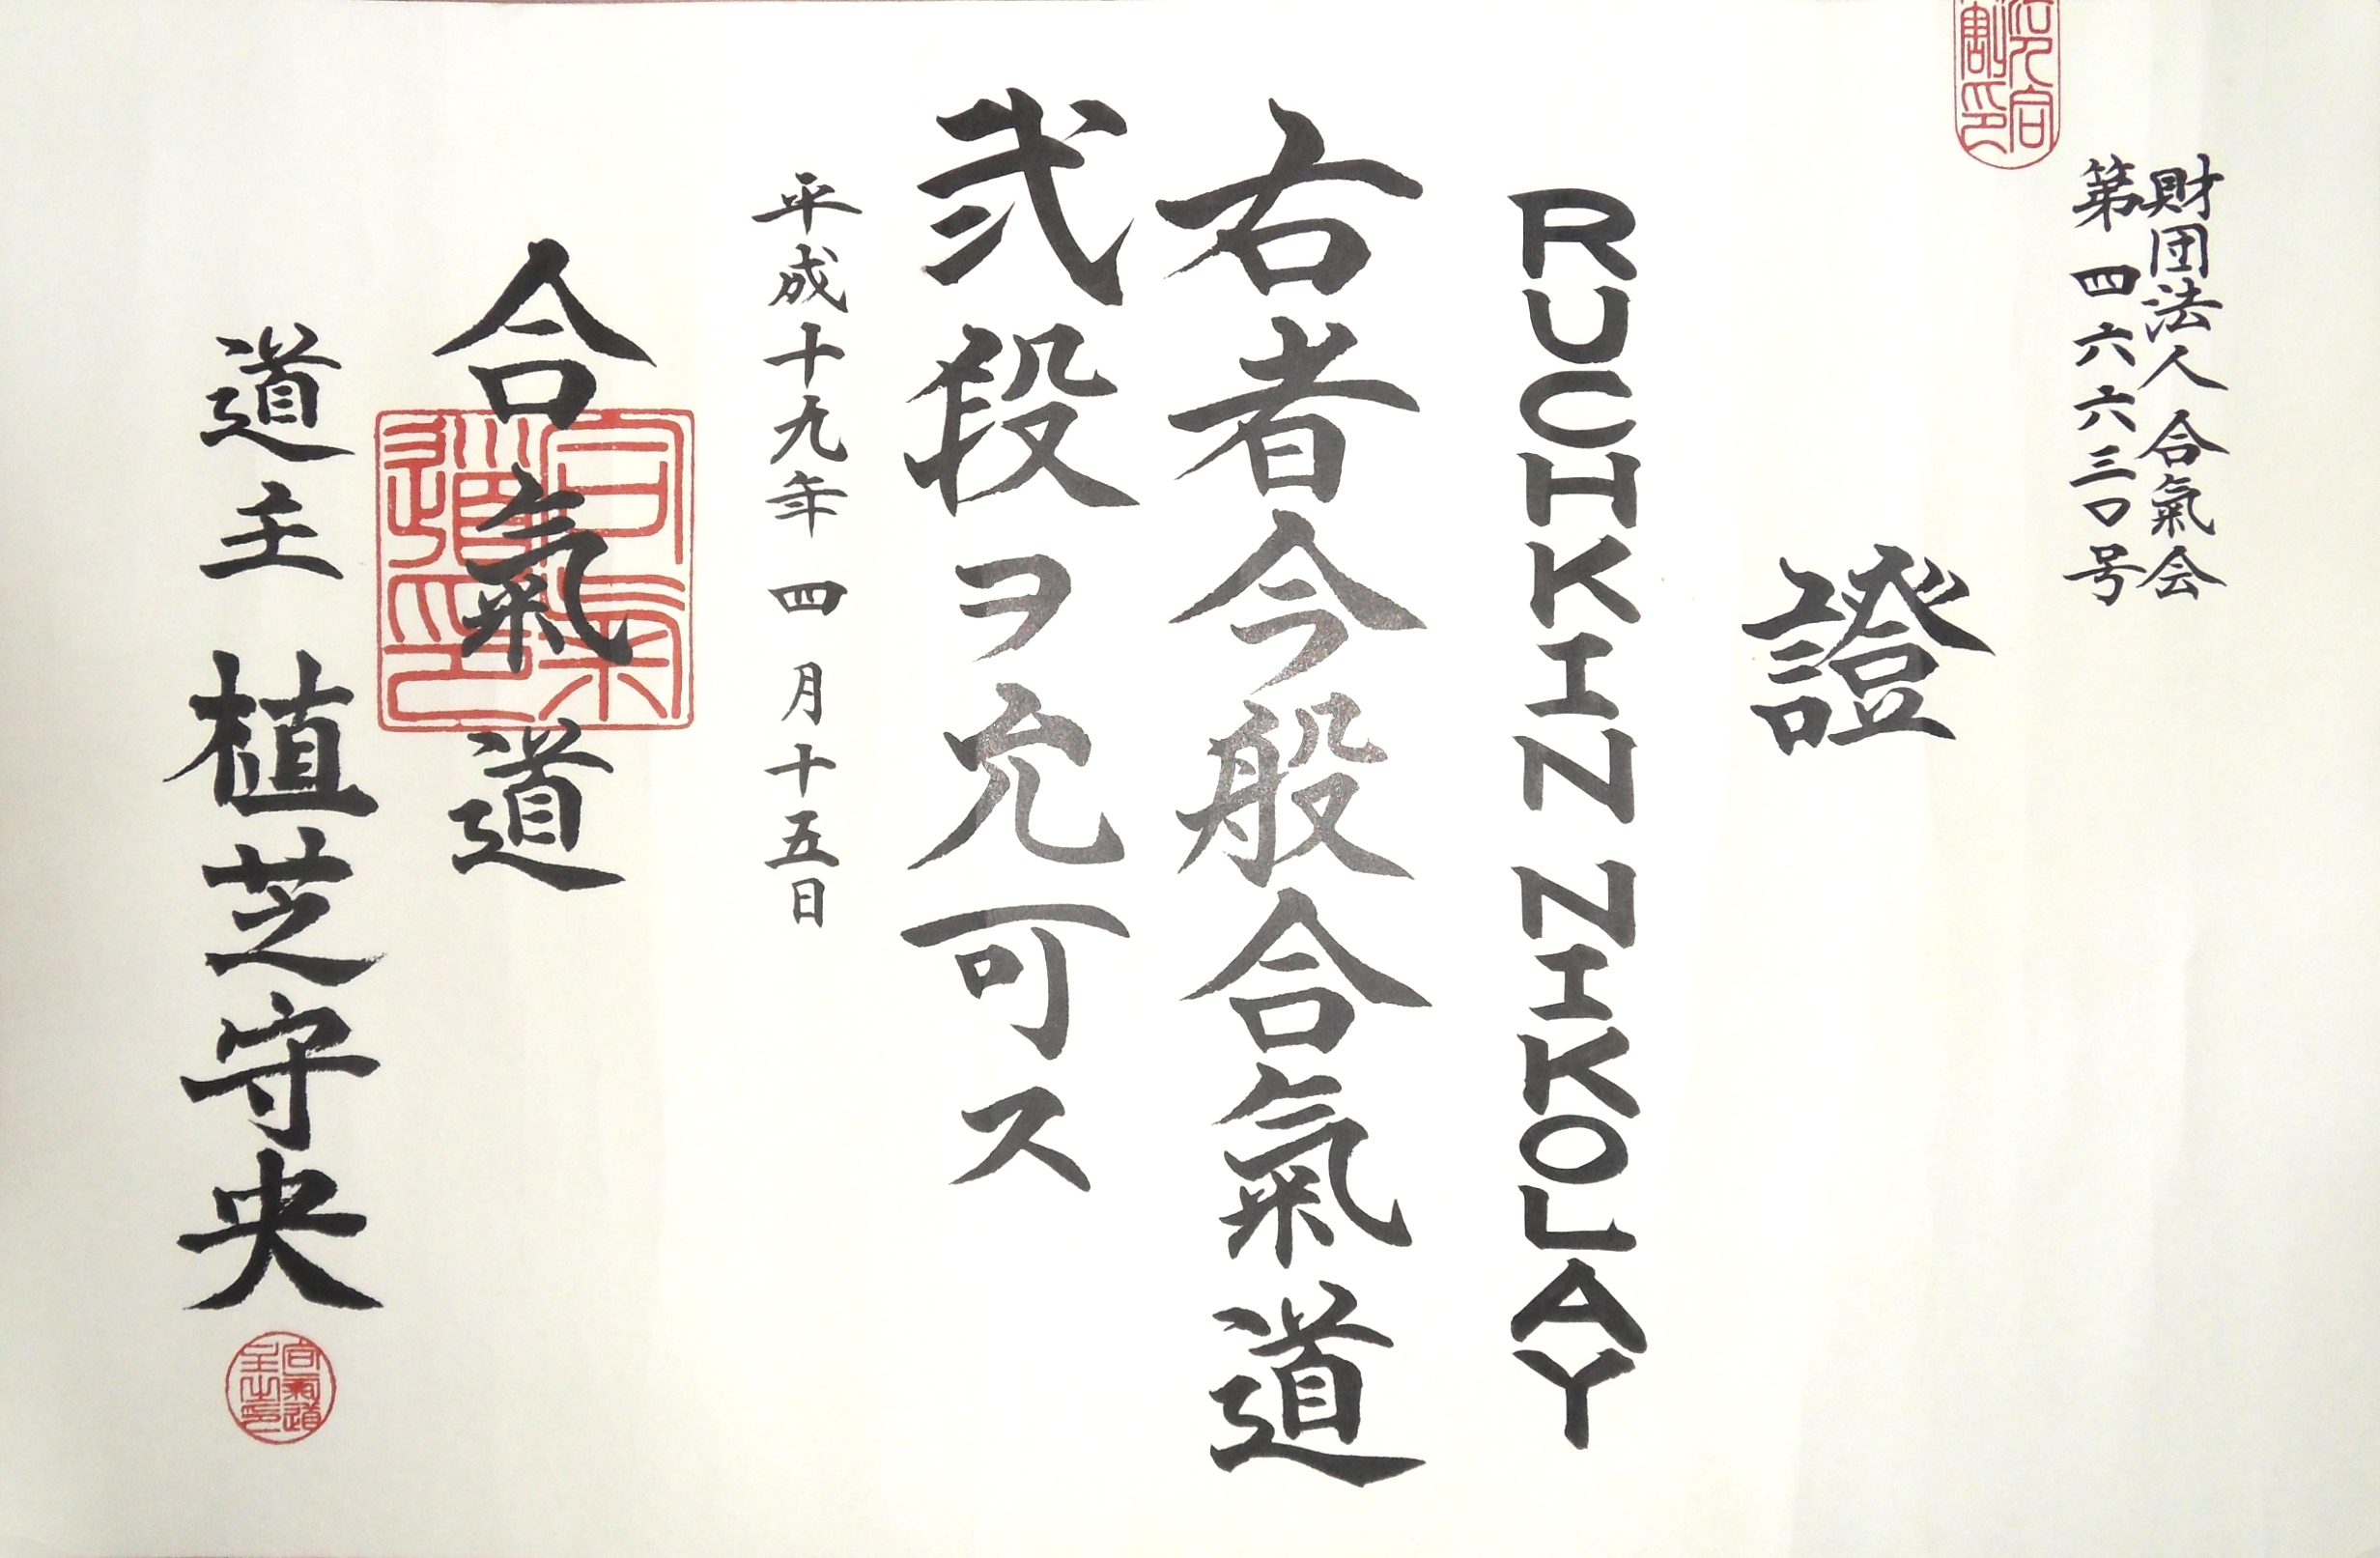 財団法人 合氣会
第四六六三〇号
證
RUCHKIN NIKOLAY
右者今般合氣道
弐段ヲ允可ス
平成十九年四月十五日
合氣道
道主 植芝守央
合氣道印